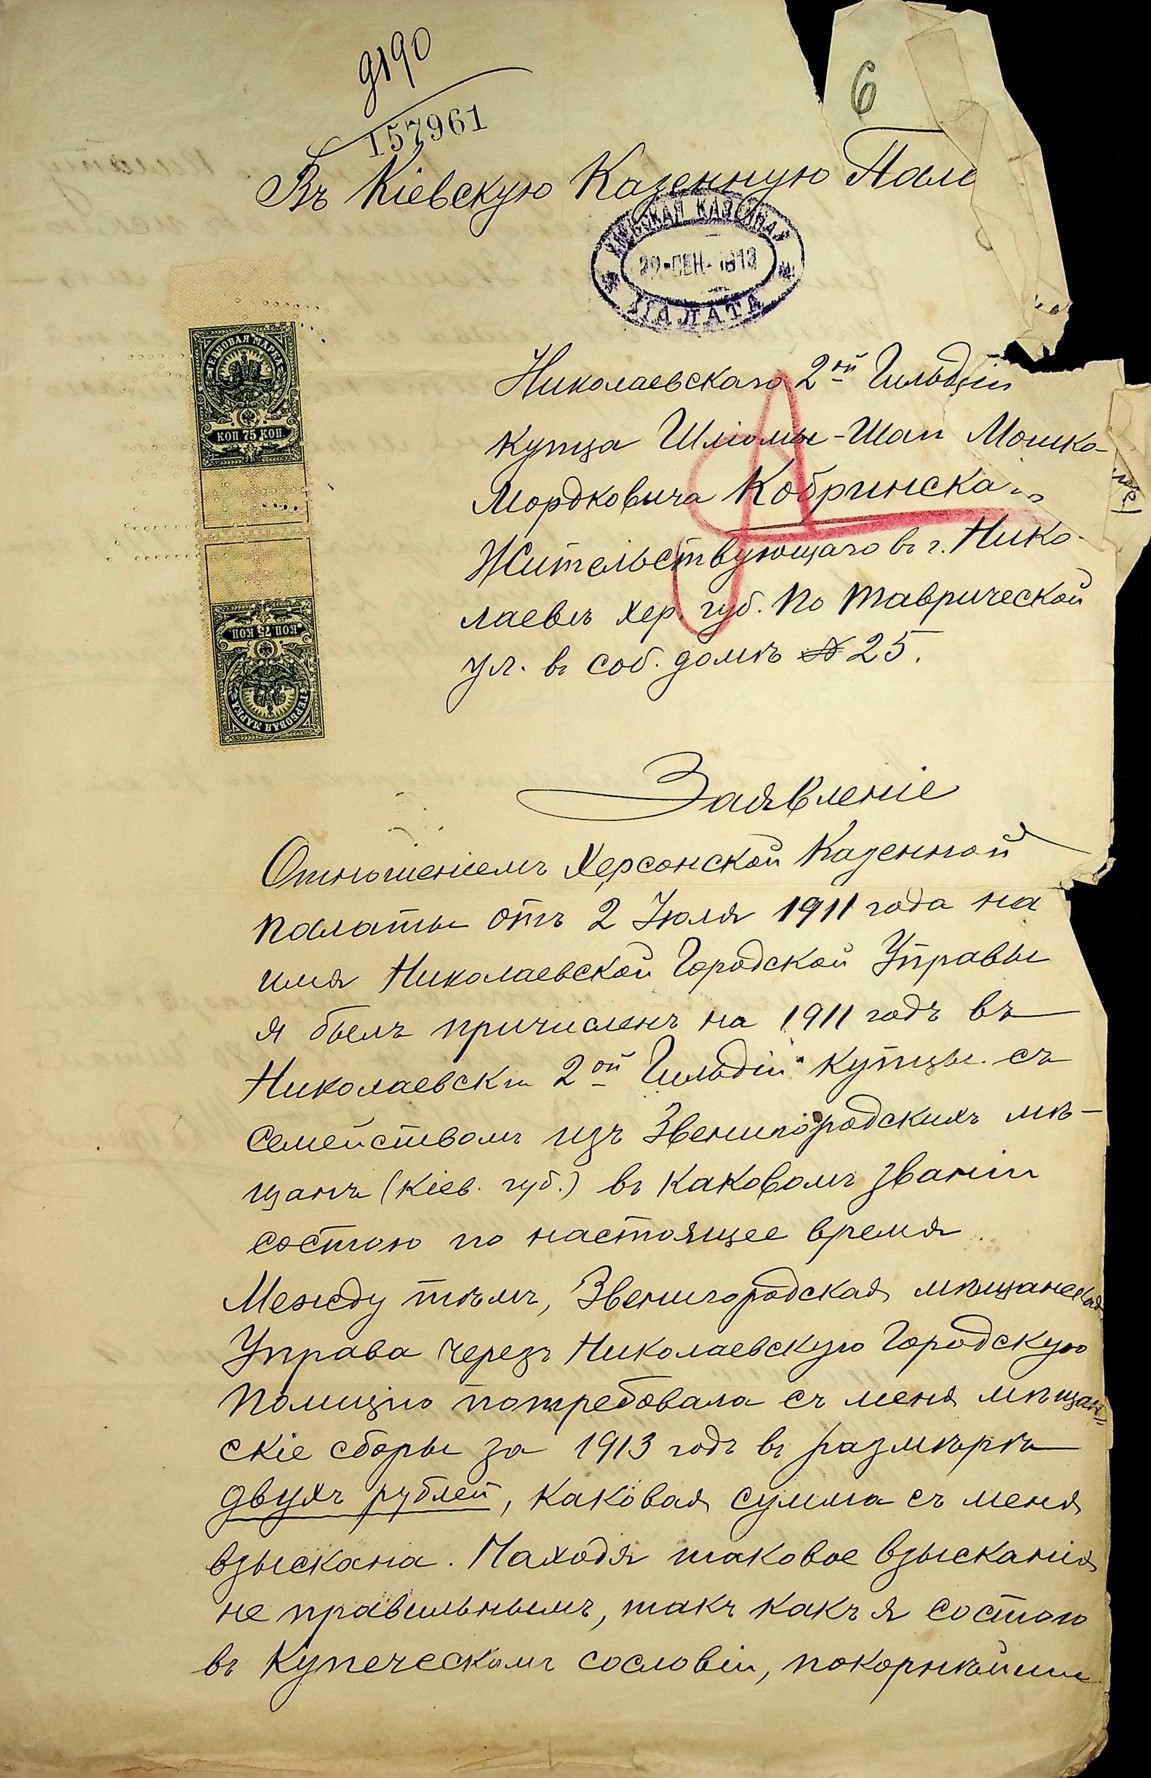 9190
157961
6
Въ Кіевскую Казенную Пала
КІЕВСКАЯ КАЗЕННАЯ
22-СЕН-1913
ПАЛАТА
ГЕРБОВАЯ МАРКА
КОП. 75 КОП
КОП. 75 КОП
ГЕРБОВАЯ МАРКА
Николаевскаго 2ой Гильдіи
Купца Шліомы-Шап Мошко-
Мордковича Кобринска
Жительствующаго въ г. Нико-
лаевѣ Хер. губ. По Таврической
ул. в соб. домѣ № 25.
Заявленіе
Отношеніемъ Херсонской Казенной
Палаты отъ 2 Іюля 1911 года на
имя Николаевской Городской Управы
я былъ причисленъ на 1911 годъ въ
Николаевскіи 2ой Гильдіи Купцы съ
семействомъ изъ Звенигородскихъ мѣ-
щанъ (Кіев. губ.) въ каковомъ званіи
состою по настоящее время.
Между тѣмъ, Звенигородская мѣщанская
Управа черезъ Николаевскую Городскую
Полицію потребовала съ меня мѣщан-
скіе сборы за 1913 годъ въ размѣрѣ
двухъ рублей, каковая сумма съ меня
взыскана. Находя таковое взысканія
не правильнымъ, такъ какъ я состою
въ Купеческомъ сословіи, покорнѣйши